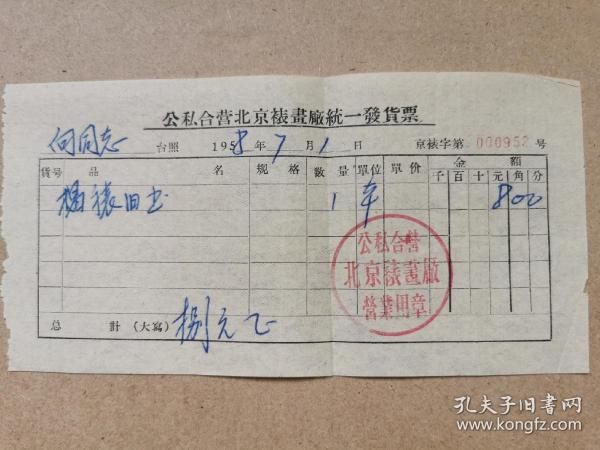 公私合营北京裱畫廠統一發貨票
何同志 台照 1958年7月1日 京裱字第 000952 号
貨号 品 名 規 格 數 量 單位 單 价 金 額
千 百 十 元 角 分
裱旧书 1 8 00
公私合营
北京裱畫廠
營業用章
总 計 (大寫) 捌元正
孔夫子旧书网
www.kongfz.com